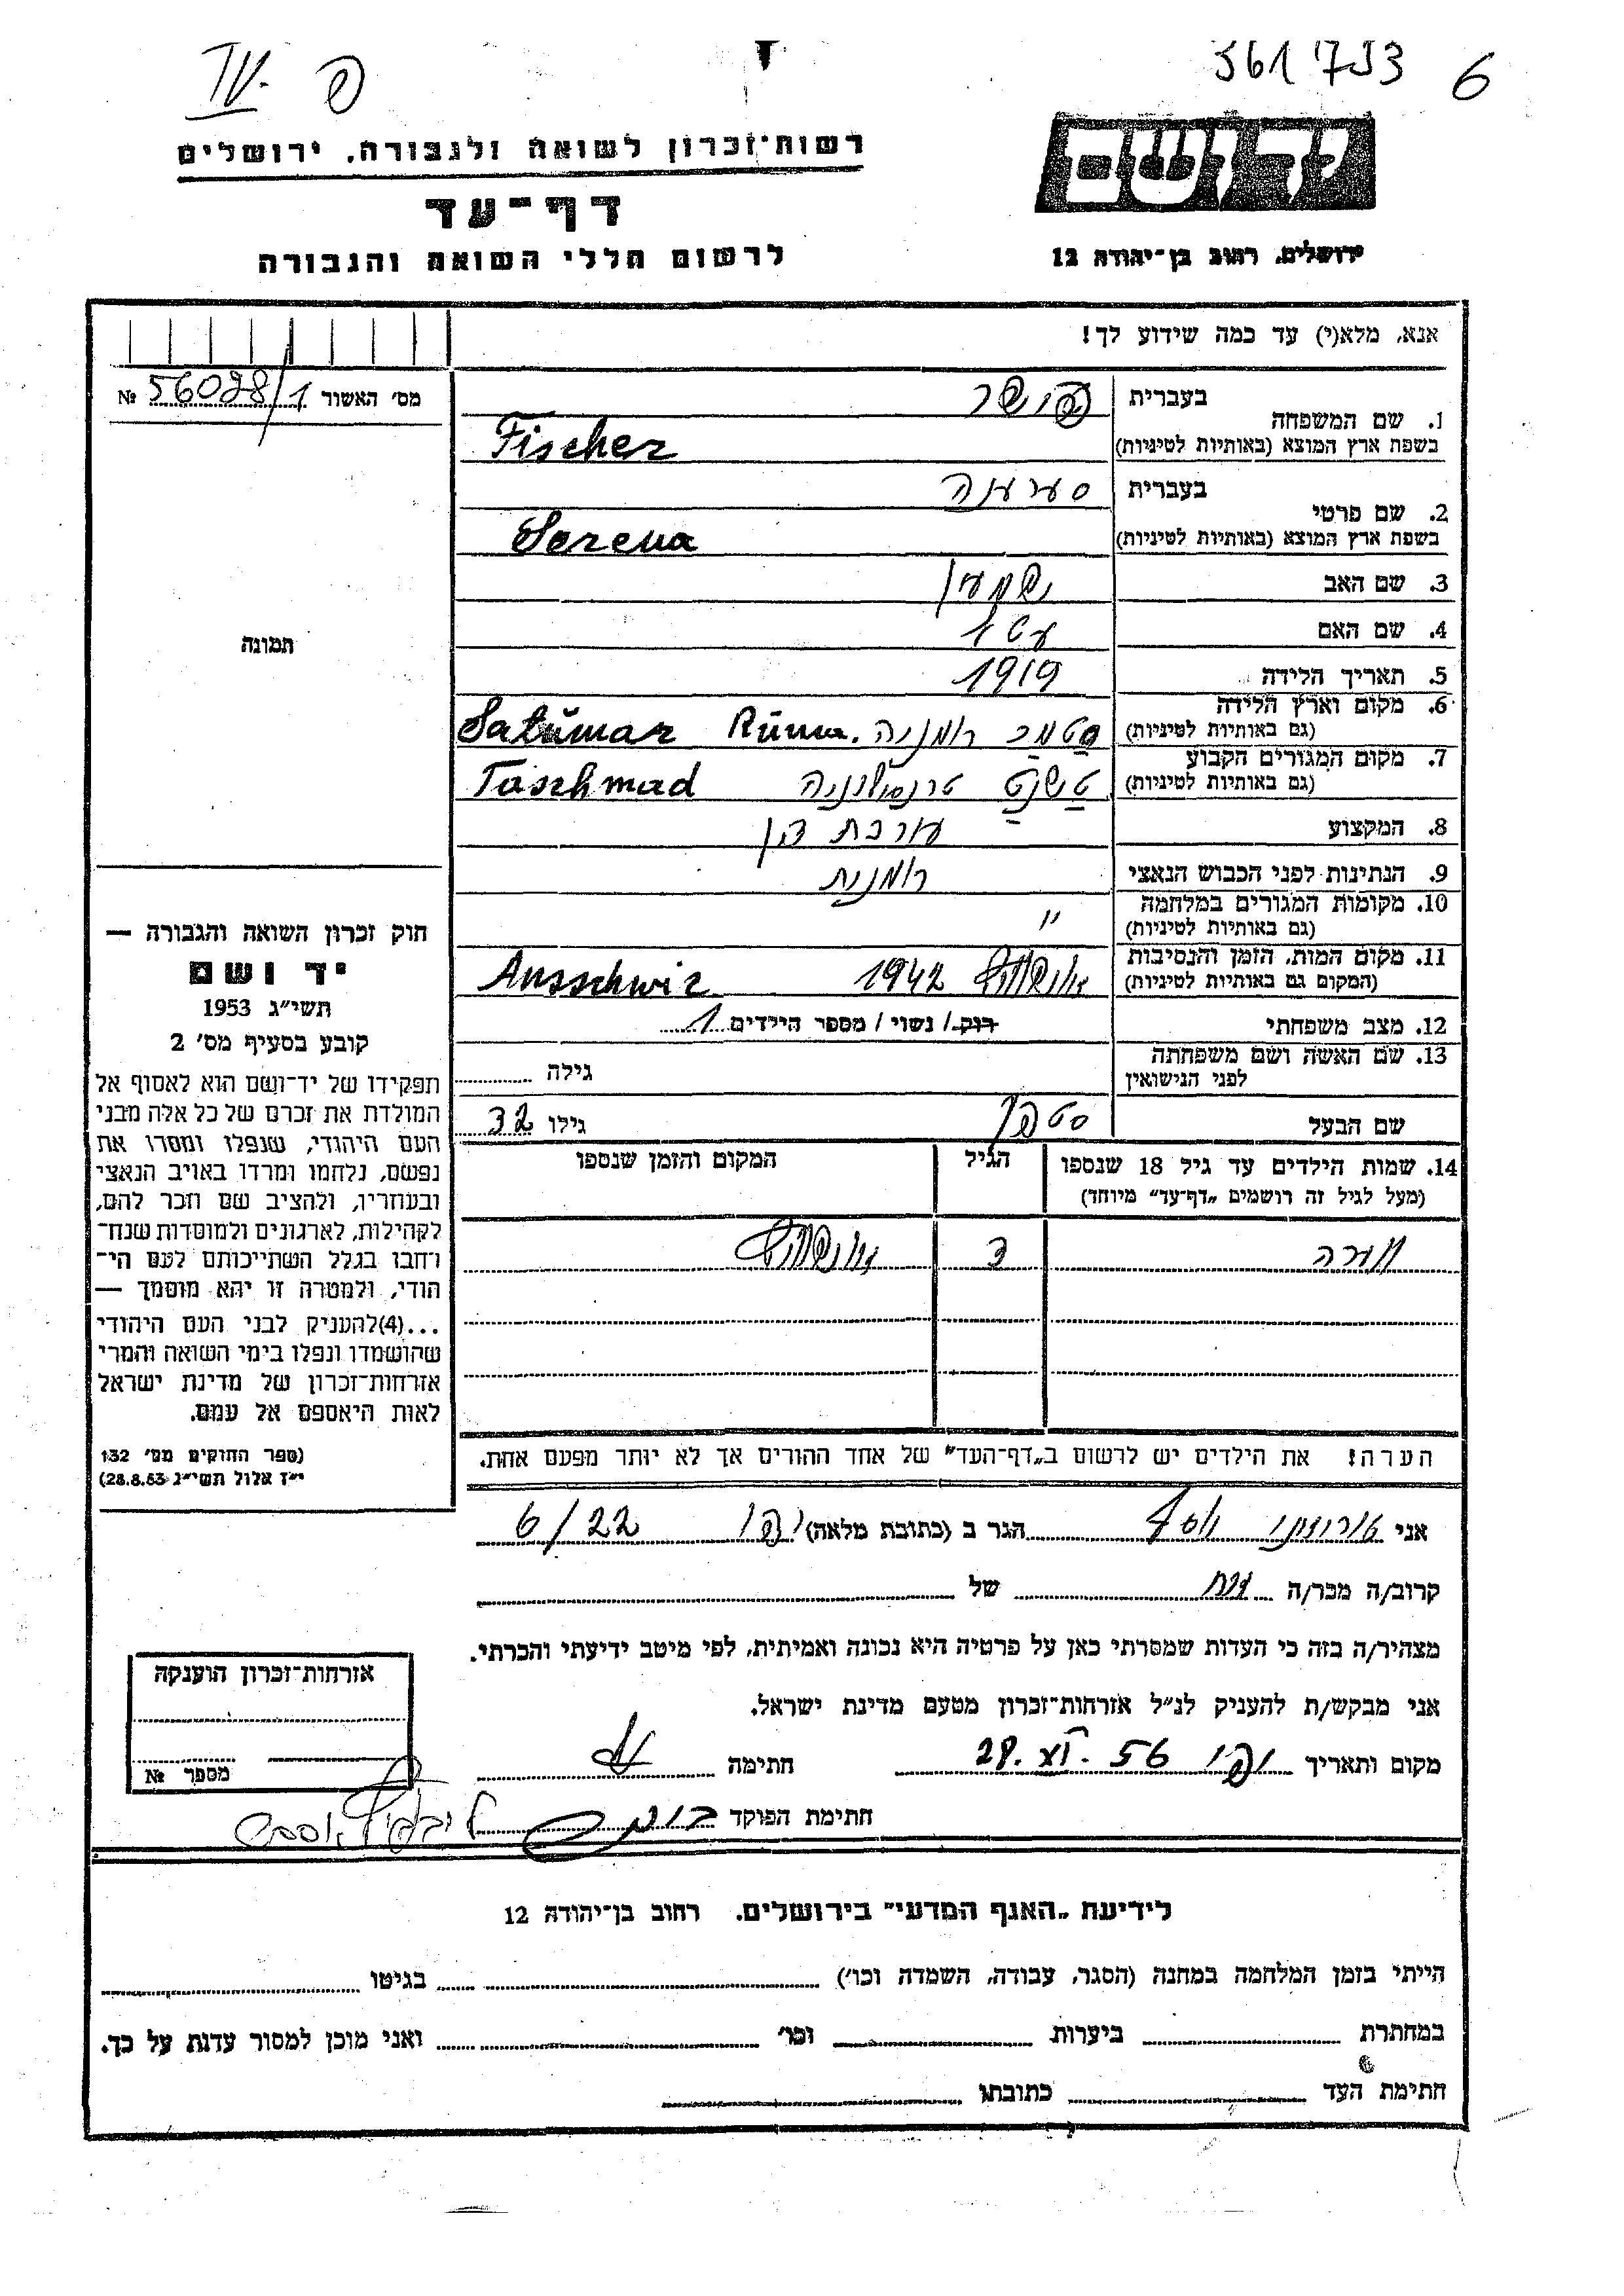 361753 6
IV פ
יד ושם
רשות־זכרון לשואה ולגבורה, ירושלים
דף־עד
לרשום חללי השואה והגבורה
ירושלים, רחוב בן־יהודה 12
אנא, מלא(י) עד כמה שידוע לך!
מס׳ האשור № 56028/1
תמונה
בעברית פישר
1. שם המשפחה
בשפת ארץ המוצא (באותיות לטיניות) Fischer
בעברית סערענה
2. שם פרטי
בשפת ארץ המוצא (באותיות לטיניות) Serena
3. שם האב שמעון
4. שם האם
5. תאריך הלידה 1919
6. מקום וארץ הלידה
(גם באותיות לטיניות) סטמר רומניה. Satŭmar Rŭma
7. מקום המגורים הקבוע
(גם באותיות לטיניות) טשנט טרנסילבניה Taschmad
8. המקצוע עורכת דין
9. הנתינות לפני הכבוש הנאצי רומנית
10. מקומות המגורים במלחמה
(גם באותיות לטיניות) "
11. מקום המות, הזמן והנסיבות
(המקום גם באותיות לטיניות) אושוויץ 1942 Ausschwiz
12. מצב משפחתי רוק/ נשוי / מספר הילדים 1
13. שם האשה ושם משפחתה
לפני הנישואין גילה
שם הבעל סטפן גילו 32
14. שמות הילדים עד גיל 18 שנספו הגיל המקום והזמן שנספו
(מעל לגיל זה רושמים „דף־עד" מיוחד)
3 אושוויץ
הערה! את הילדים יש לרשום ב„דף־העד" של אחד ההורים אך לא יותר מפעם אחת.
חוק זכרון השואה והגבורה —
יד ושם
תשי״ג 1953
קובע בסעיף מס׳ 2
תפקידו של יד־ושם הוא לאסוף אל
המולדת את זכרם של כל אלה מבני
העם היהודי, שנפלו ומסרו את
נפשם, נלחמו ומרדו באויב הנאצי
ובעוזריו, ולהציב שם וזכר להם,
לקהילות, לארגונים ולמוסדות שנח־
רחבו בגלל השתייכותם לעם הי־
הודי, ולמטרה זו יהא מוסמך —
...(4)להעניק לבני העם היהודי
שהושמדו ונפלו בימי השואה והמרי
אזרחות־זכרון של מדינת ישראל
לאות היאספם אל עמם.
(ספר החוקים מס׳ 132
י״ז אלול תשי״ג 28.8.53)
אני יוסף הגר ב (כתובת מלאה) יפו 6/22
קרוב/ה מכר/ה אח של
מצהיר/ה בזה כי העדות שמסרתי כאן על פרטיה היא נכונה ואמיתית, לפי מיטב ידיעתי והכרתי.
אני מבקש/ת להעניק לנ״ל אזרחות־זכרון מטעם מדינת ישראל.
מקום ותאריך יפו 28. XI. 56 חתימה
חתימת הפוקד
אזרחות־זכרון הוענקה
מספר №
לידיעת „האגף המדעי" בירושלים, רחוב בן־יהודה 12
הייתי בזמן המלחמה במחנה (הסגר, עבודה, השמדה וכו׳) בגיטו
במחתרת ביערות וכו׳ ואני מוכן למסור עדות על כך.
חתימת העד כתובתו